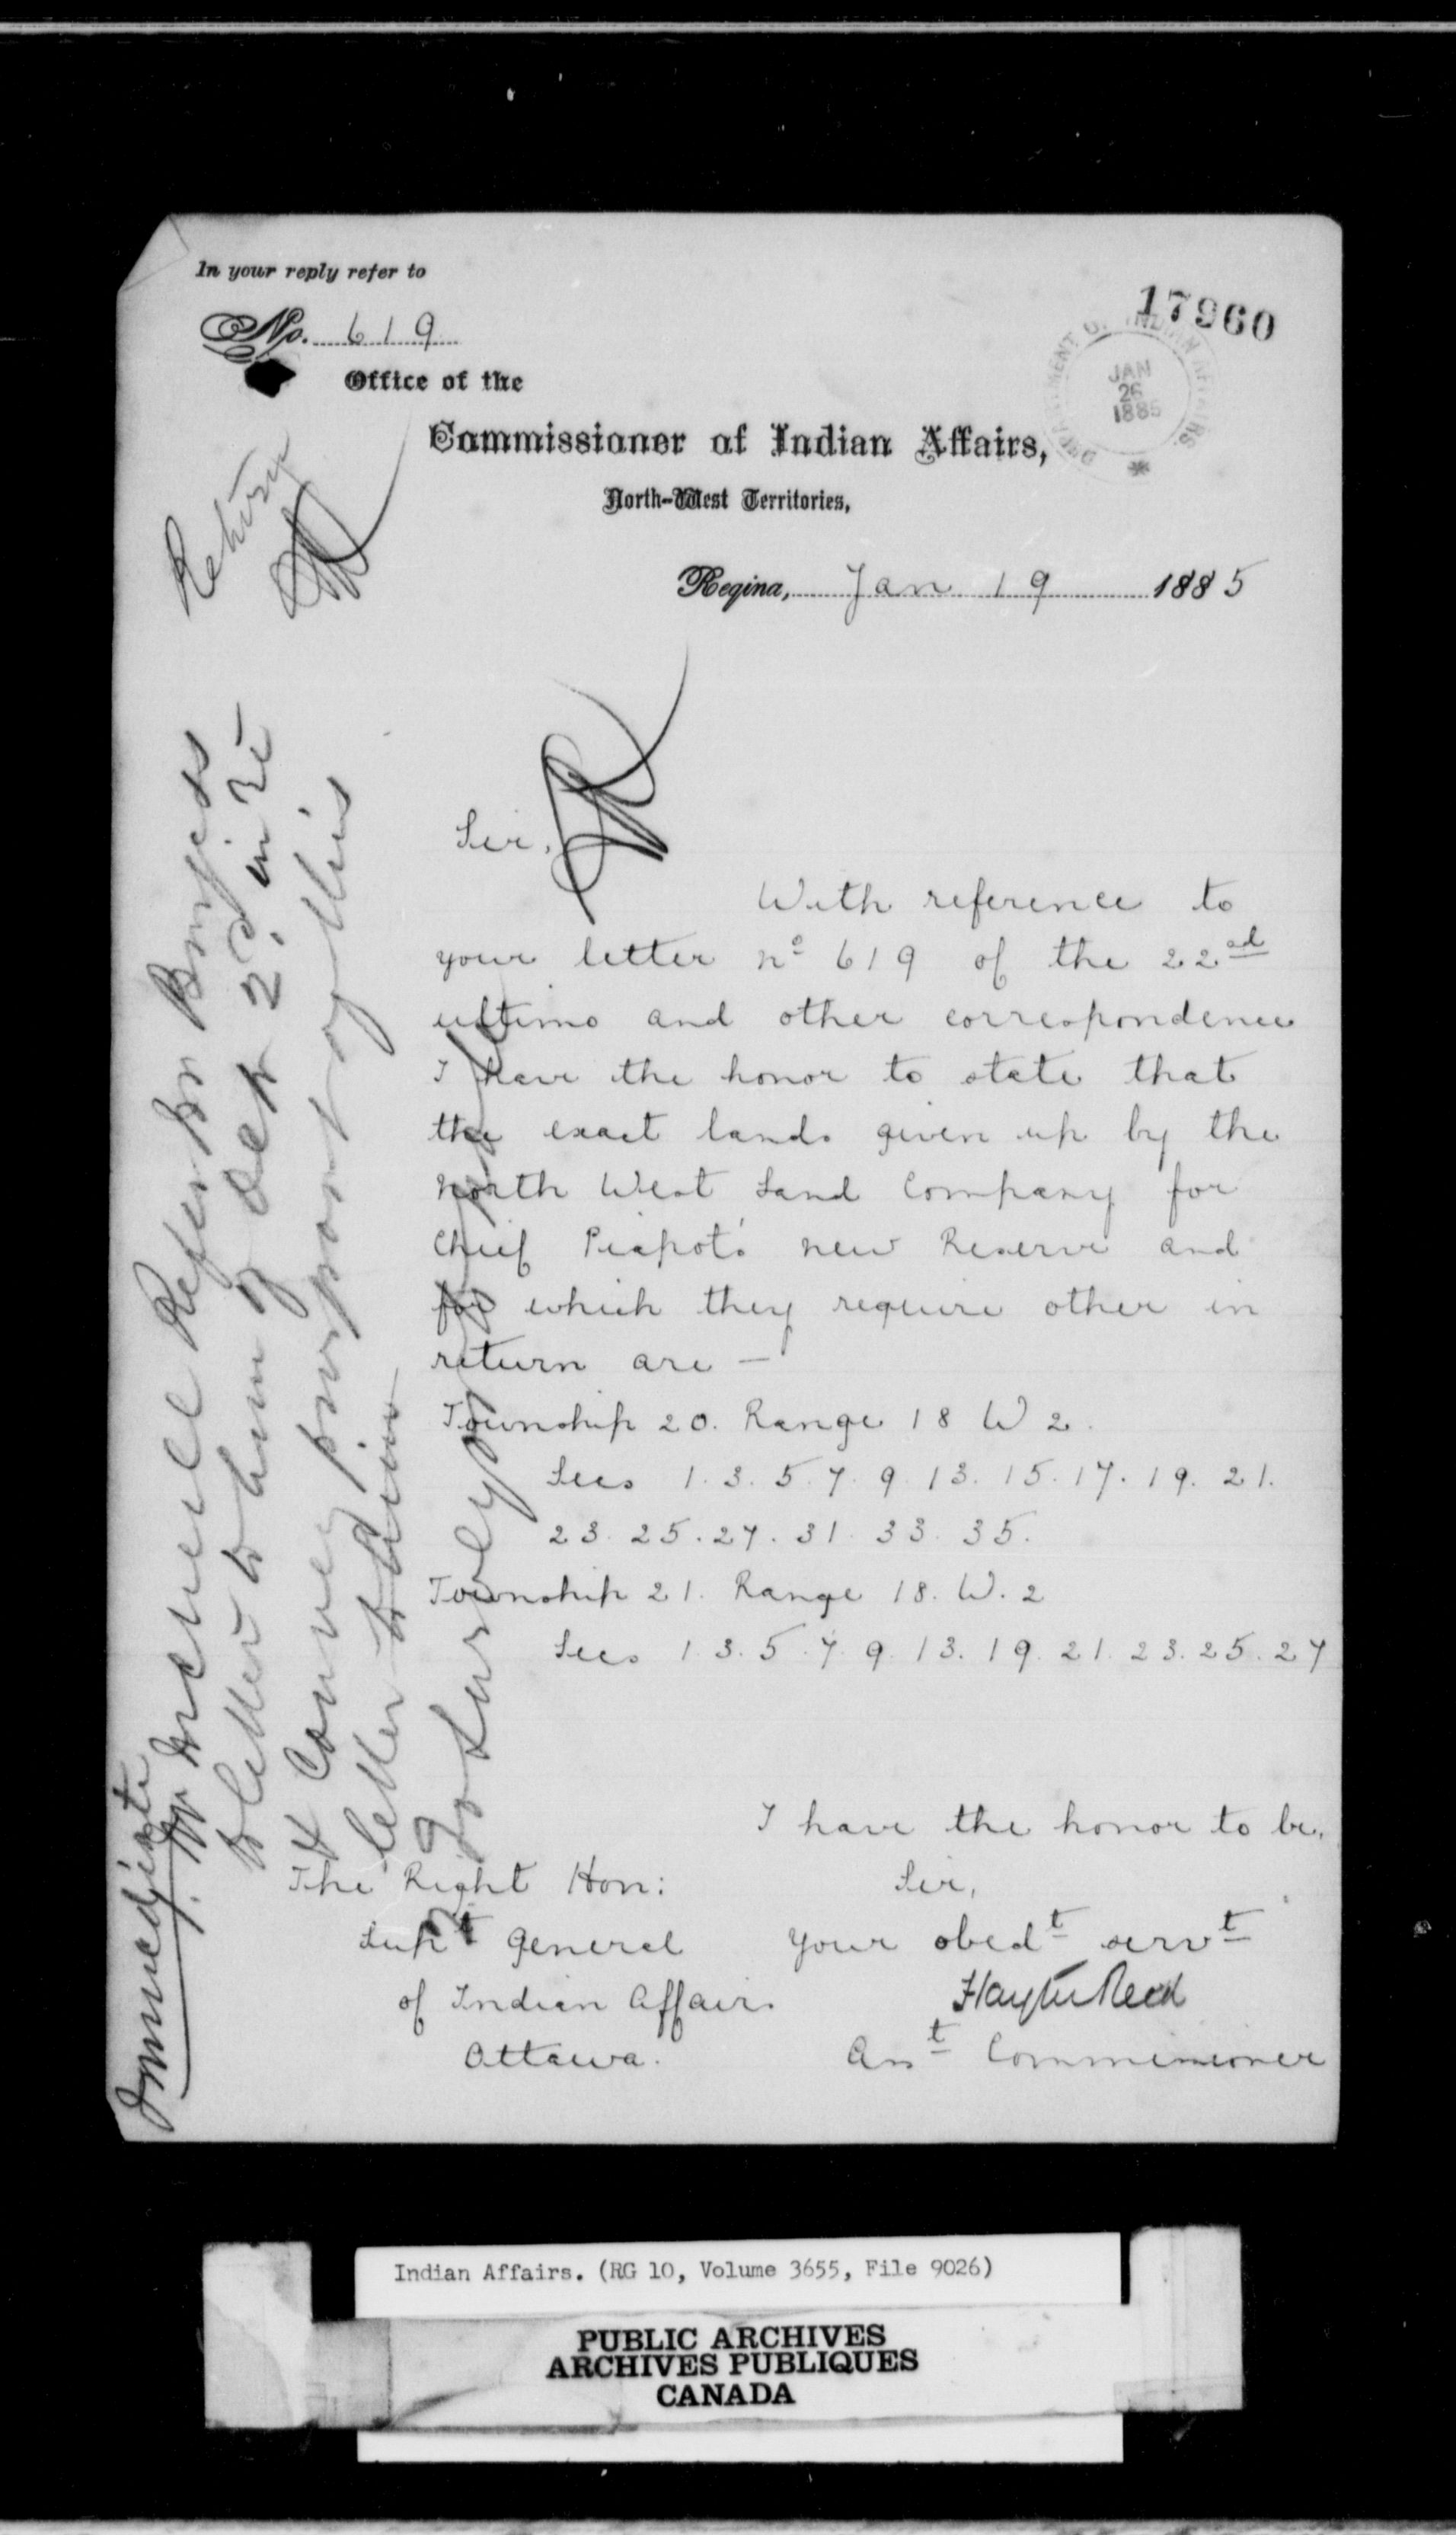 In your reply refer to
No. 619
17960
DEPARTMENT OF INDIAN AFFAIRS.
JAN
26
1885
Office of the
Commissioner of Indian Affairs,
North-West Territories,
Regina, Jan 19 1885
Return
Sir,
With reference to
your letter no 619 of the 22nd
ultimo and other correspondence
I have the honor to state that
the exact lands given up by the
North West Land Company for
Chief Piapot's new Reserve and
for which they require other in
return are —
Township 20. Range 18 W 2.
Secs 1. 3. 5. 7. 9. 13. 15. 17. 19. 21.
23. 25. 27. 31. 33. 35.
Township 21. Range 18. W. 2
Secs 1. 3. 5. 7. 9. 13. 19. 21. 23. 25. 27
I have the honor to be,
Sir,
Your obedt servt
Hayter Reed
Asst Commissioner
The Right Hon:
Supt General
of Indian Affairs
Ottawa.
Immediate
Mr McNeill Refer Mr Burgess
to letter to him of Dept in re
& convey purport of this
letter to him
Indian Affairs. (RG 10, Volume 3655, File 9026)
PUBLIC ARCHIVES
ARCHIVES PUBLIQUES
CANADA